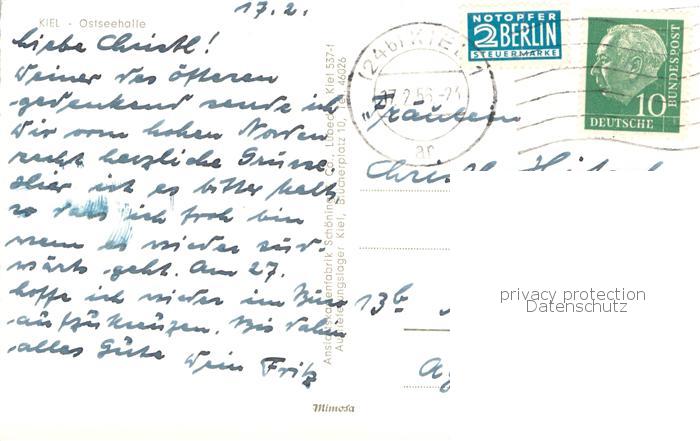 17.2.
KIEL - Ostseehalle
Liebe Christl!
Deiner des öfteren
gedenkend sende ich
Dir vom hohen Norden
recht herzliche Grüsse.
Hier ist es bitter kalt,
so dass ich froh bin
wenn es wieder süd-
wärts geht. Am 27.
hoffe ich wieder im Büro
aufzukreuzen. Bis dahin
alles Gute
Dein Fritz
Ansichtskartenfabrik Schöning & Co., Lübeck Kiel 537-f
Auslieferungslager Kiel, Blücherplatz 10, Tel. 46026
Mimosa
NOTOPFER
2 BERLIN
STEUERMARKE
(24b) KIEL 1
17.2.56-21
10
DEUTSCHE
BUNDESPOST
Fräulein
13b
privacy protection
Datenschutz